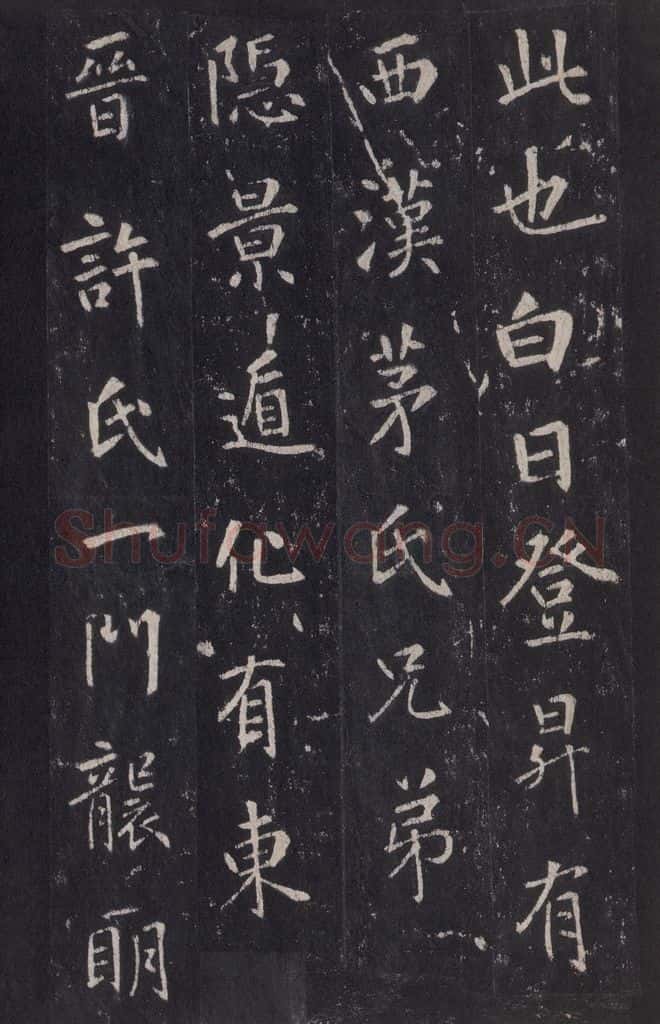 此也白日登昇有
西漢茅氏兄弟
隱景遁化有東
晉許氏一門襲明
Shufawang.CN